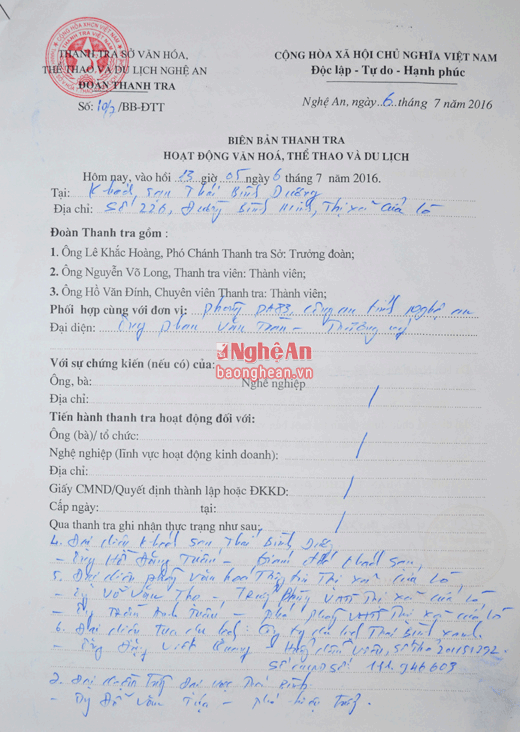 THANH TRA SỞ VĂN HÓA,
THỂ THAO VÀ DU LỊCH NGHỆ AN
ĐOÀN THANH TRA
Số: 10/7/BB-ĐTT
CỘNG HÒA XÃ HỘI CHỦ NGHĨA VIỆT NAM
Độc lập - Tự do - Hạnh phúc
Nghệ An, ngày 6 tháng 7 năm 2016
BIÊN BẢN THANH TRA
HOẠT ĐỘNG VĂN HOÁ, THỂ THAO VÀ DU LỊCH
Hôm nay, vào hồi 13 giờ 05 ngày 6 tháng 7 năm 2016.
Tại: Khách sạn Thái Bình Dương
Địa chỉ: Số 226, Đường Bình Minh, Thị xã Cửa Lò
Đoàn Thanh tra gồm :
1. Ông Lê Khắc Hoàng, Phó Chánh Thanh tra Sở: Trưởng đoàn;
2. Ông Nguyễn Võ Long, Thanh tra viên: Thành viên;
3. Ông Hồ Văn Đính, Chuyên viên Thanh tra: Thành viên;
Phối hợp cùng với đơn vị: Phòng PA83, Công an tỉnh Nghệ An
Đại diện: Ông Phan Văn - Thượng uý
Nghệ An
baonghean.vn
Với sự chứng kiến (nếu có) của:
Ông, bà: Nghề nghiệp
Địa chỉ:
Tiến hành thanh tra hoạt động đối với:
Ông (bà)/ tổ chức:
Nghề nghiệp (lĩnh vực hoạt động kinh doanh):
Địa chỉ:
Giấy CMND/Quyết định thành lập hoặc ĐKKD:
Cấp ngày: tại:
Qua thanh tra ghi nhận thực trạng như sau:
4. Đại diện Khách sạn Thái Bình Dương
- Ông Hồ Đăng Tuấn - Giám đốc khách sạn,
5. Đại diện phòng Văn hoá Thông tin Thị xã Cửa Lò,
- Ông Võ Văn - Trưởng Phòng VHTT Thị xã Cửa Lò
- Ông Trần Anh Tuấn - Phó phòng VHTT Thị xã Cửa Lò
6. Đại diện Công ty du lịch Thái Bình xanh
- Ông Đặng Việt - Hướng dẫn viên,